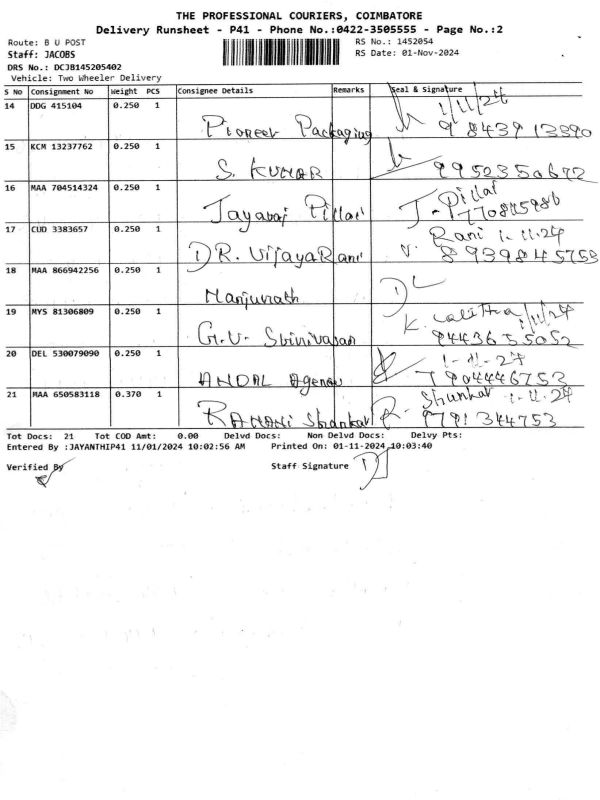 THE PROFESSIONAL COURIERS, COIMBATORE
Delivery Runsheet - P41 - Phone No.:0422-3505555 - Page No.:2
Route: B U POST
RS No.: 1452054
Staff: JACOBS
RS Date: 01-Nov-2024
DRS No.: DCJB145205402
Vehicle: Two Wheeler Delivery
S No Consignment No Weight PCS Consignee Details Remarks Seal & Signature
14 DDG 415104 0.250 1 Pioneer Packaging 1/11/24 9843913390
15 KCM 13237762 0.250 1 S. KUMAR 9952350672
16 MAA 704514324 0.250 1 Jayaraj Pillai J. Pillai 1770845986
17 CUD 3383657 0.250 1 DR. VijayaRani V. Rani 1-11-24 8939845753
18 MAA 866942256 0.250 1 Manjunath DL
19 MYS 81306809 0.250 1 G.V. Srinivasan K. Lalitha 1/11/24 9443655052
20 DEL 530079090 0.250 1 ANDAL Agency 1-11-24 7904446753
21 MAA 650583118 0.370 1 RAMANI Shankar R. Shankar 1-11-24 9791344753
Tot Docs: 21 Tot COD Amt: 0.00 Delvd Docs: Non Delvd Docs: Delvy Pts:
Entered By :JAYANTHIP41 11/01/2024 10:02:56 AM Printed On: 01-11-2024 10:03:40
Verified By Staff Signature